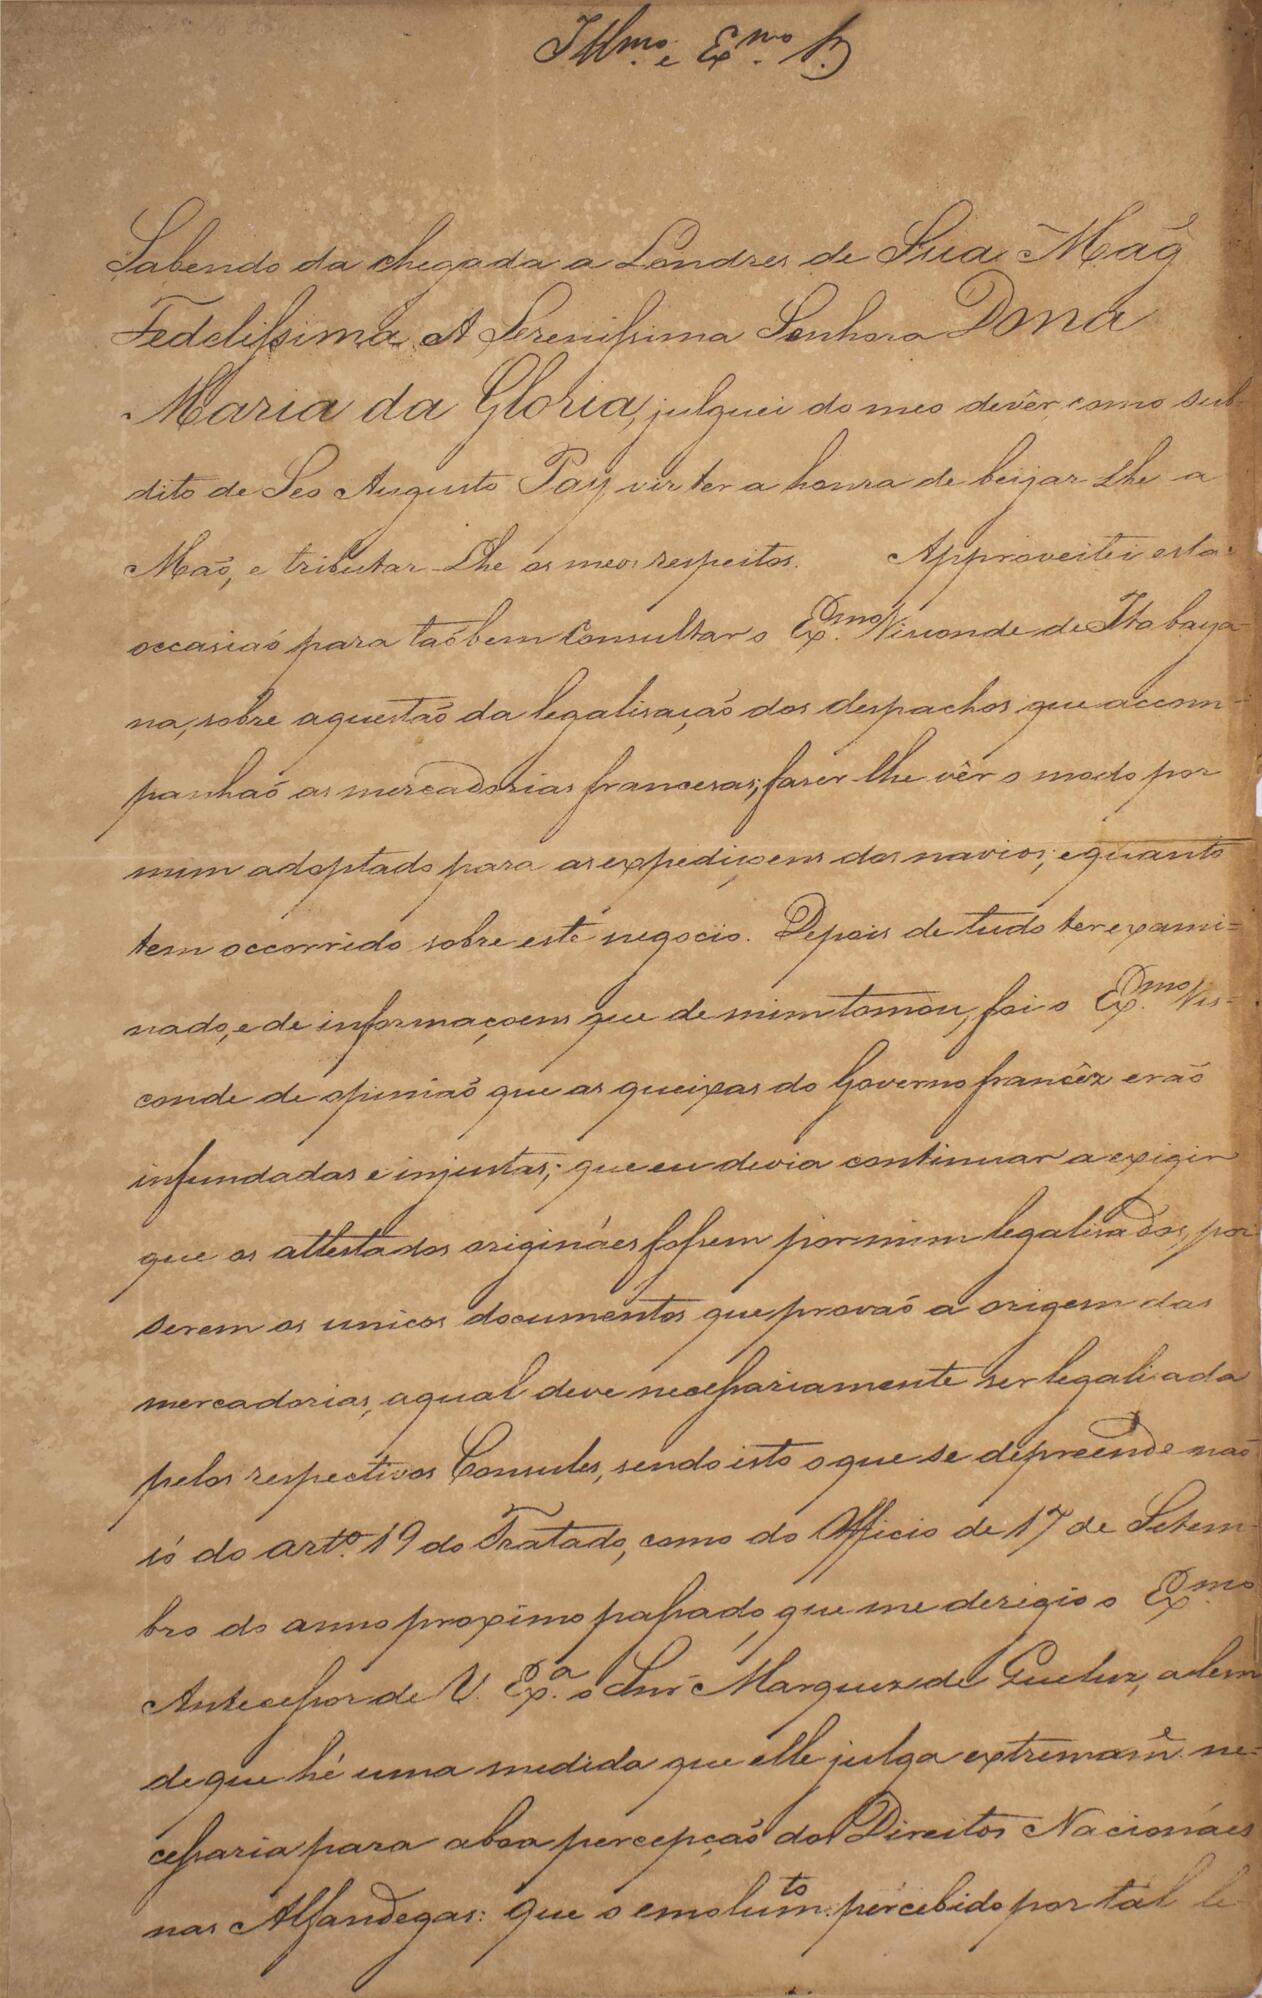 Illmo. e Exmo. Sr.
Sabendo da chegada a Londres de Sua Magẽ
Fedelissima A Serenissima Senhora Dona
Maria da Gloria, julguei do meo devêr, como sub-
dito de Seo Augusto Pay, vir ter a honra de beijar-Lhe a
Maõ, e tributar-Lhe os meos respeitos. Approveitei esta
occasiaõ para taõbem Consultar o Exmo. Visconde de Itabaya-
na, sobre a questaõ da legalisaçaõ dos despachos que accom-
panhaõ as mercadorias francesas; faser-lhe vêr o modo por
mim adoptado para as expediçoens dos navios; e quanto
tem occorrido sobre este negocio. Depois de tudo ter exami=
nado, e de informaçoens que de mim tomou, foi o Exmo. Vis-
conde de opiniaõ que as queixas do Governo francêz eraõ
infundadas e injustas; que eu devia continuar a exigir
que os attestados origináes fossem por mim legalisados, por
serem os unicos documentos que provaõ a origem das
mercadorias, a qual deve necessariamente ser legalisada
pelos respectivos Consules, sendo isto o que se deprende naõ
só do arto. 19 do Tratado, como do Officio de 17 de Setem-
bro do anno proximo passado, que me derigio o Exmo.
Antecessor de V. Exa. o Snr. Marquez de Queluz, alem
de que hé uma medida que elle julga extremamẽ. ne=
cessaria para a boa percepçaõ dos Direitos Nacionáes
nas Alfandegas: que o emolumto. percebido por tal le-